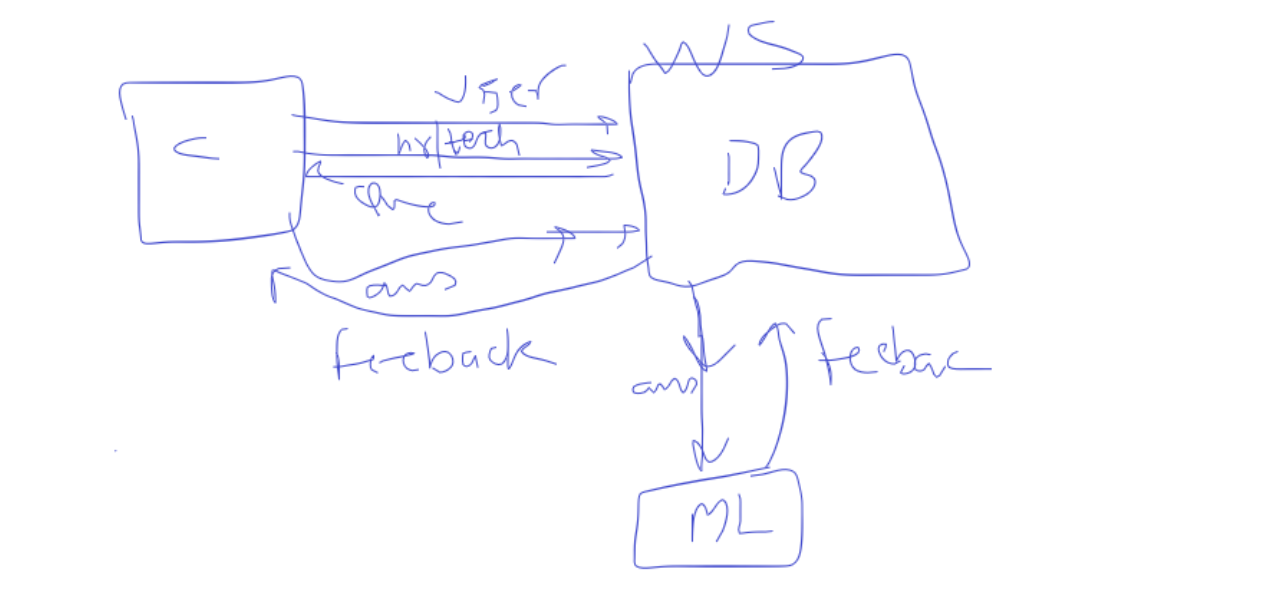 WS
user
C
hr/tech
DB
que
ans
feeback
ans
feebac
ML